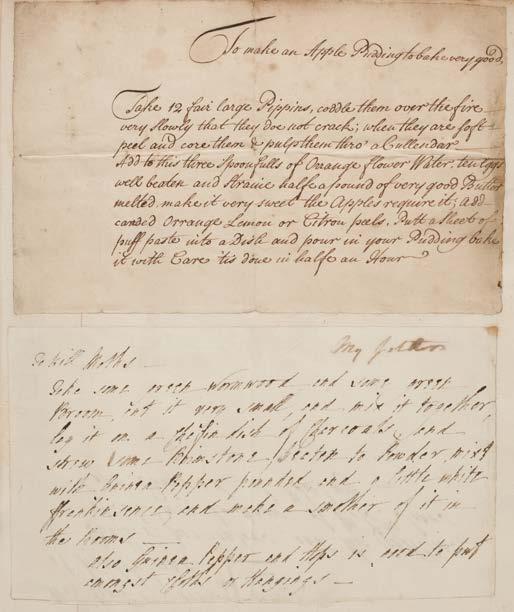 To make an Apple Pudding to bake very good,
Take 12 fair large Pippins, coddle them over the fire
very slowly that they doe not crack; when they are soft
peel and core them & pulp them thro' a Cullendar
Add to this three Spoonfulls of Orange flower Water; ten Eggs
well beaten and Straine half a pound of very good Butter
melted, make it very sweet the Apples require it; add
candied Orrange Lemon or Citron peels. Putt a Sheet of
puff paste into a Dish and pour in your Pudding bake
it with Care 'tis done in half an Hour
My
To kill Moths.
Take some green Wormwood and some green
Broom, cut it very small, and mix it together,
lay it on a Chafin dish of Charcoals, and
strew some Brimstone, beaten to Powder, mixt
with Guinea Pepper pounded and a little white
ffrankinsence, and make a smother of it in
the Rooms —
also Guinea Pepper and Hops is good to putt
amongst Cloths or Hangings —